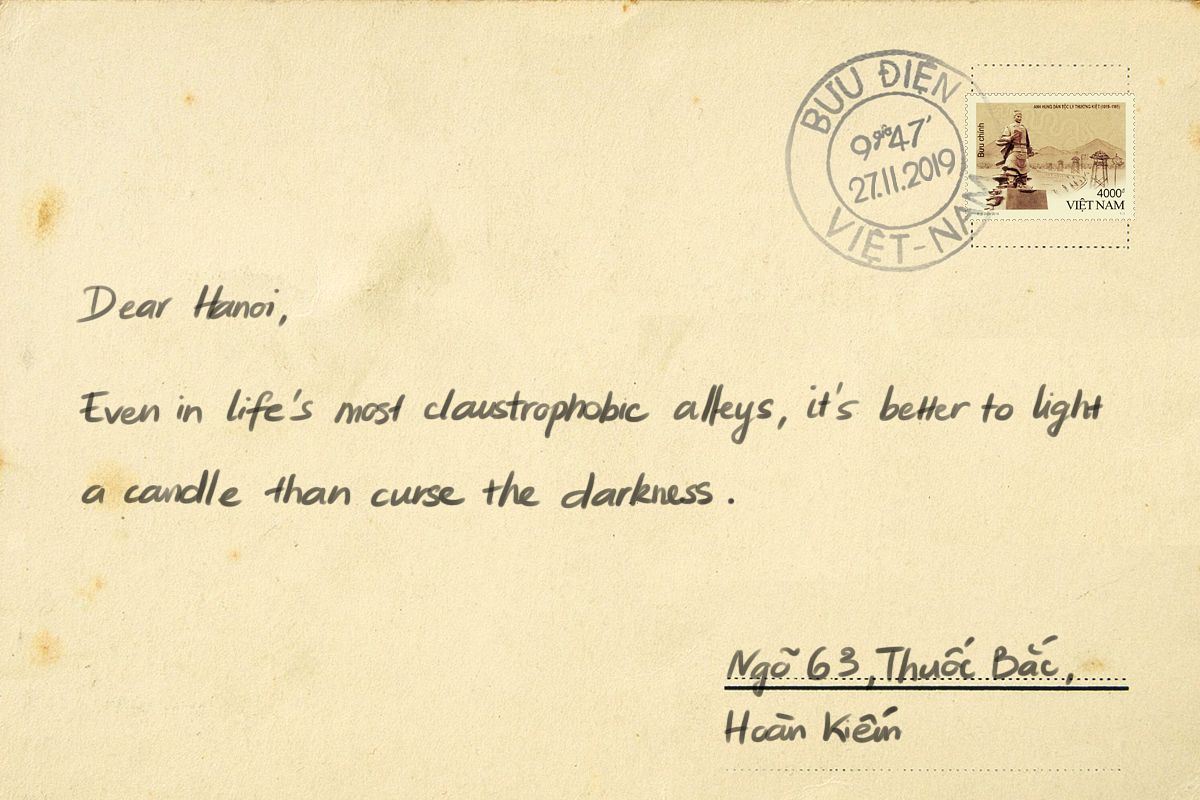 BƯU ĐIỆN
9giờ47'
27.11.2019
VIỆT-NAM
ANH HÙNG DÂN TỘC LÝ THƯỜNG KIỆT (1019-1105)
Bưu chính
4000đ
VIỆT NAM
Dear Hanoi,
Even in life's most claustrophobic alleys, it's better to light
a candle than curse the darkness.
Ngõ 63, Thuốc Bắc,
Hoàn Kiếm